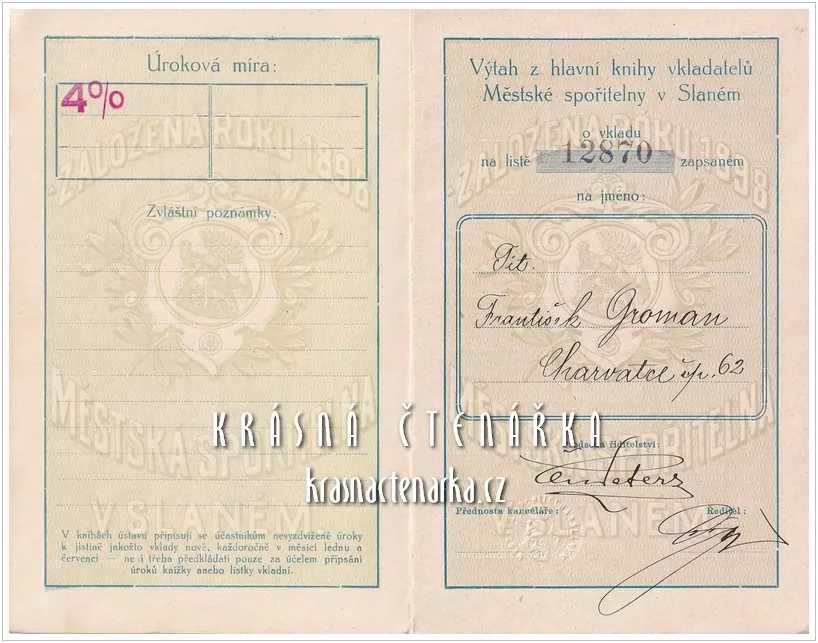 Úroková míra:
4%
ZALOŽENA ROKU 1898
Zvláštní poznámky:
MĚSTSKÁ SPOŘITELNA
V SLANÉM
V knihách ústavu připisují se účastníkům nevyzdvižené úroky
k jistině jakožto vklady nové, každoročně v měsíci lednu a
červenci — není třeba předkládati pouze za účelem připsání
úroků knížky anebo lístky vkladní.
Výtah z hlavní knihy vkladatelů
Městské spořitelny v Slaném
o vkladu
na listě 12870 zapsaném
na jméno:
ZALOŽENA ROKU 1898
Tit.
František Groman
Charvatce čp. 62
MĚSTSKÁ SPOŘITELNA
V SLANÉM
Předseda ředitelství:
Přednosta kanceláře: Ředitel:
KRÁSNÁ ČTENÁŘKA
krasnactenarka.cz